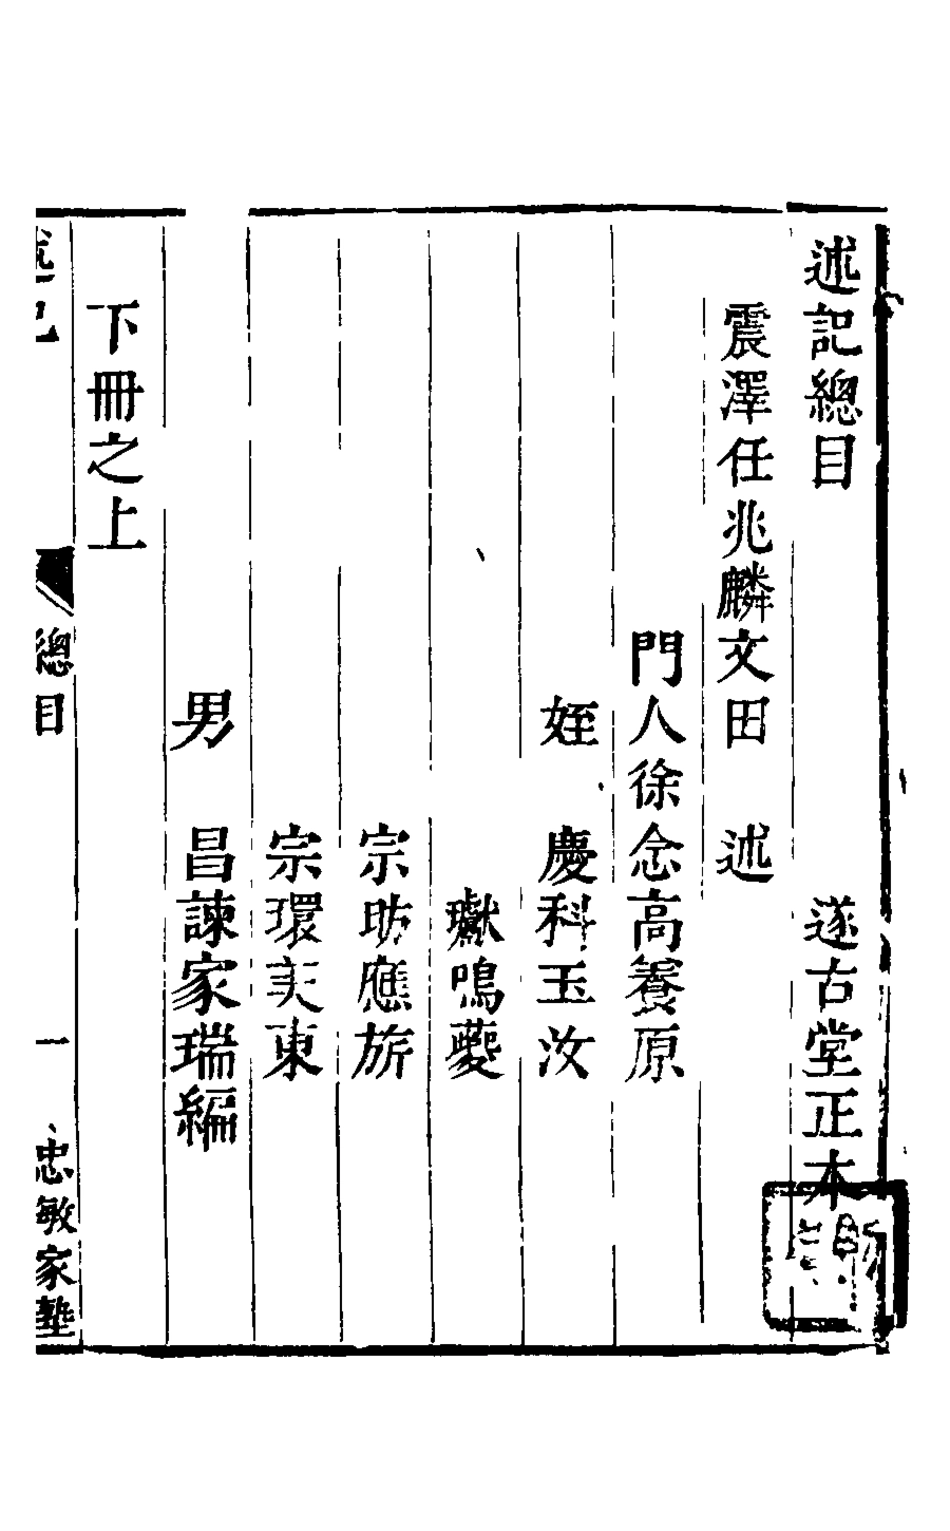 述記總目　遂古堂正本
震澤任兆麟文田　述
門人徐念高養原
姪　慶科玉汝
獻鳴夔
宗昉應旂
宗環芙東
男　昌諫家瑞編
下冊之上
述記　總目　一　忠敏家塾